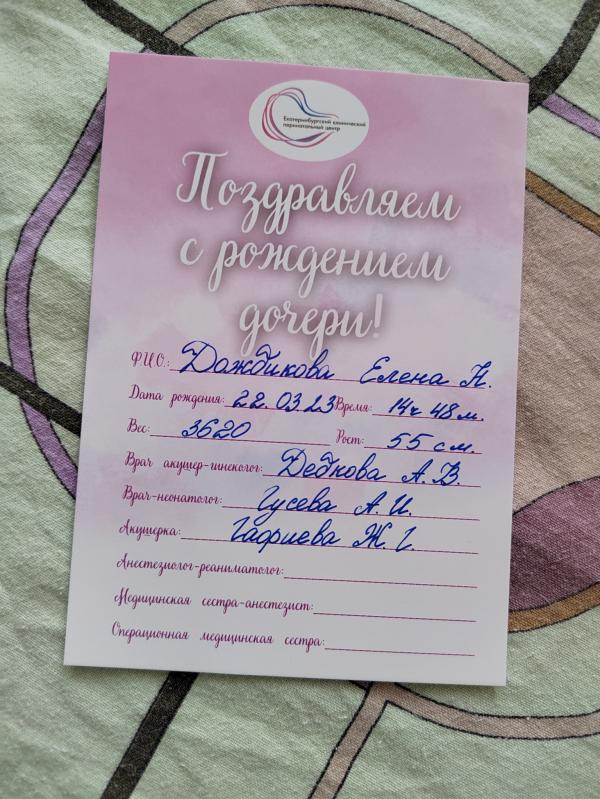 Екатеринбургский клинический
перинатальный центр
Поздравляем
с рождением
дочери!
Ф.И.О.: Дождикова Елена Н.
Дата рождения: 22.03.23 Время: 14ч 48м.
Вес: 3620 Рост: 55 см.
Врач акушер-гинеколог: А.В.
Врач-неонатолог: Гусева А.И.
Акушерка: Гафиева Ж.Г.
Анестезиолог-реаниматолог:
Медицинская сестра-анестезист:
Операционная медицинская сестра: